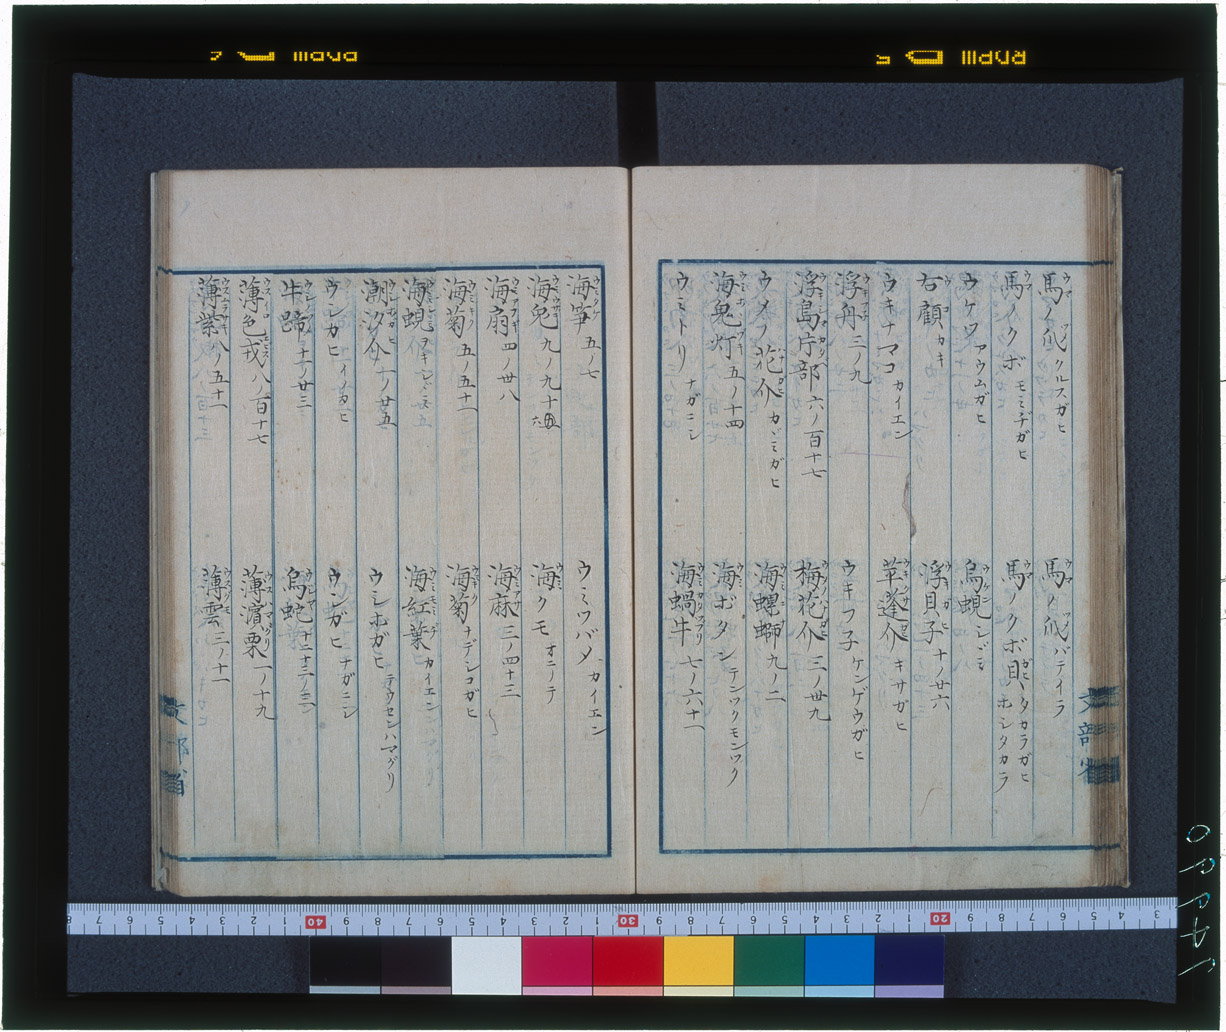 馬ノ爪 クルスガヒ
馬ノ爪 バテイラ
馬イクボ モミヂガヒ
馬ノクボ貝 タカラガヒ ホシタカラ
ウケツ アウムガヒ
烏蜆 シジミ
右顧 カキ
浮貝子 十ノ廿六
ウキナマコ カイエン
草蓬介 キサガヒ
浮舟 三ノ九
ウキフ子 ケンゲウガヒ
浮島片部 六ノ百十七
梅花介 三ノ卅九
ウメノ花介 カヾミガヒ
海螺螄 九ノ二
海鬼灯 五ノ十四
海ボタン テンツクモンツク
ウミトリ ナガニシ
海蝸牛 七ノ六十一
海筝 五ノ七
ウミツバメ カイエン
海兔 九ノ九十
海クモ オニノテ
海扇 四ノ卅八
海麻 三ノ四十三
海菊 五ノ五十一
海菊 ナデシコガヒ
海蜆 ヲキシヾミ
海紅葉 カイエン
潮汐介 一ノ廿五
ウシホガヒ テウセンハマグリ
ウシカヒ イソガヒ
ウシガヒ ナガニシ
牛蹄 十一ノ廿三
烏蛇
薄色戎 八ノ百十七
薄濱栗 一ノ十九
薄紫 八ノ五十一
薄雲 三ノ十一
文部省
文部省